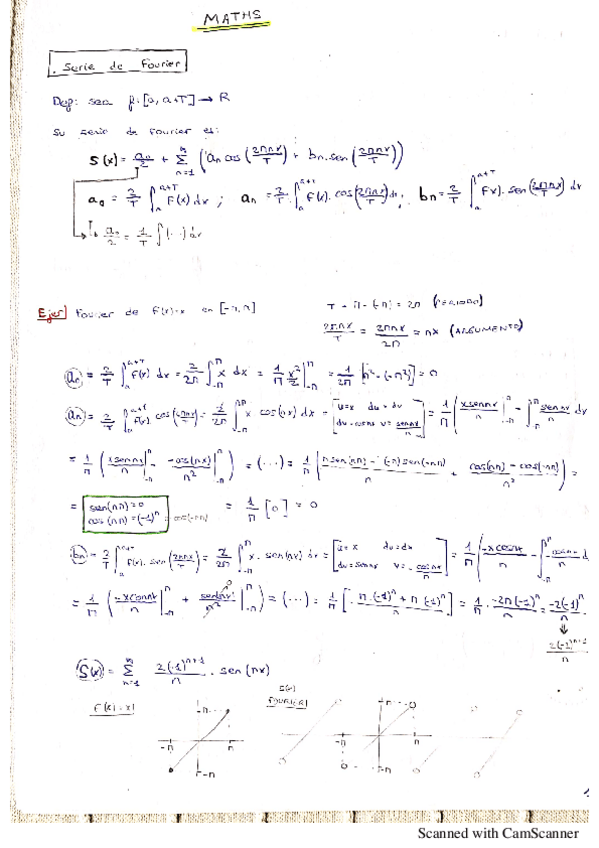 MATHS
. Serie de Fourier
Def: sea f: [a, a+T] → R
Su serie de Fourier es:
S(x) = a₀/2 + Σ_{n=1}^{∞} (aₙ cos(2πnx/T) + bₙ . sen(2πnx/T))
a₀ = 2/T ∫_a^{a+T} F(x) dx ; aₙ = 2/T . ∫_a^{a+T} F(x) . cos(2πnx/T) dx ; bₙ = 2/T ∫_a^{a+T} F(x) . sen(2πnx/T) dx
a₀/2 = 1/T ∫(...) dx
Ejer] Fourier de F(x)=x en [-π, π]
T = π - (-π) = 2π (PERIODO)
2πnx/T = 2πnx/2π = nx (ARGUMENTO)
= 2/T ∫_a^{a+T} f(x) dx = 2/2π ∫_{-π}^{π} x dx = 1/π x²/2 |_{-π}^{π} = 1/2π [π² - (-π²)] = 0
aₙ = 2/T ∫_a^{a+T} f(x) . cos(2πnx/T) = 2/2π ∫_{-π}^{π} x cos(nx) dx = [u=x du=dx dv=cosnx v=sennx/n] = 1/π (x sennx/n |_{-π}^{π} - ∫_{-π}^{π} sennx/n dx
= 1/π (x sennx/n |_{-π}^{π} - -cos(nx)/n² |_{-π}^{π}) = (...) = 1/π (π sen(nπ) - (-π) sen(-nπ)/n + cos(nπ) - cos(-nπ)/n²) =
= [sen(nπ) = 0 cos(nπ) = (-1)ⁿ = cos(-nπ)] = 1/π [0] = 0
bₙ = 2/T ∫_a^{a+T} f(x) . sen(2πnx/T) = 2/2π ∫_{-π}^{π} x . sen(nx) dx = [u=x du=dx dv=sennx v=-cosnx/n] = 1/π (-x cosnx/n - ∫_{-π}^{π}
= 1/π (-x cosnx/n |_{-π}^{π} + sen(nx)/n² |_{-π}^{π}) = (...) = 1/π [- π.(-1)ⁿ + π(-1)ⁿ/n] = 1/π . -2π(-1)ⁿ/n = -2(-1)ⁿ/n
2(-1)ⁿ⁺¹/n
S(x) = Σ_{n=1}^{∞} 2(-1)ⁿ⁺¹/n . sen(nx)
F(x) = x
π
-π π
-π
S(x)
FOURIER
π
-π π
-π
Scanned with CamScanner